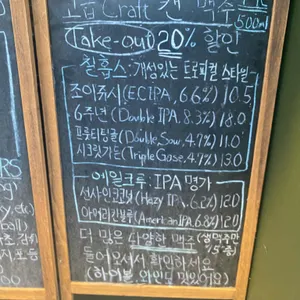 고급 Craft 캔 맥주
500ml
Take-out 20% 할인
칠홉스: 개성있는 트로피컬 스타일
조이쥬시(ECIPA, 6.6%) 10.5
6주년(Double IPA, 8.3%) 18.0
프룻티텅글(Double, Sour, 4.7%) 11.0
시크릿가든(Triple Gose, 4.7%) 13.0
에일크루: IPA 명가
선샤인코코넛(Hazy IPA, 6.2%) 12.0
아메리칸블루(American IPA, 6.8%) 12.0
더 많은 다양한 맥주(병맥주만
75종)
들어오셔서 확인하세요
(하이볼, 와인도 맛있어요)